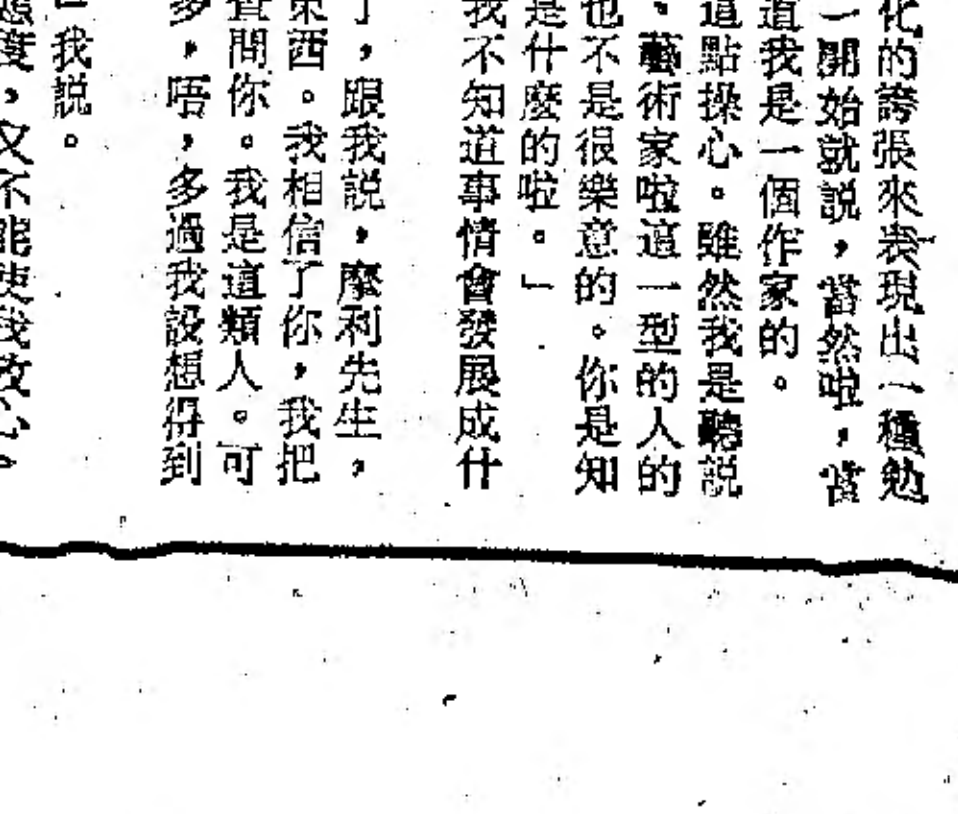 化的誇張來表現出一種勉
一開始就説，當然啦，當
道我是一個作家的。
這點操心。雖然我是聽説
。藝術家啦這一型的人的
也不是很樂意的。你是知
是什麼的啦。」
我不知道事情會發展成什
了，跟我説，摩利先生，
東西。我相信了你，我把
查問你。我是這類人。可
多，唔，多過我設想得到
我説。
態度，又不能使我改心。